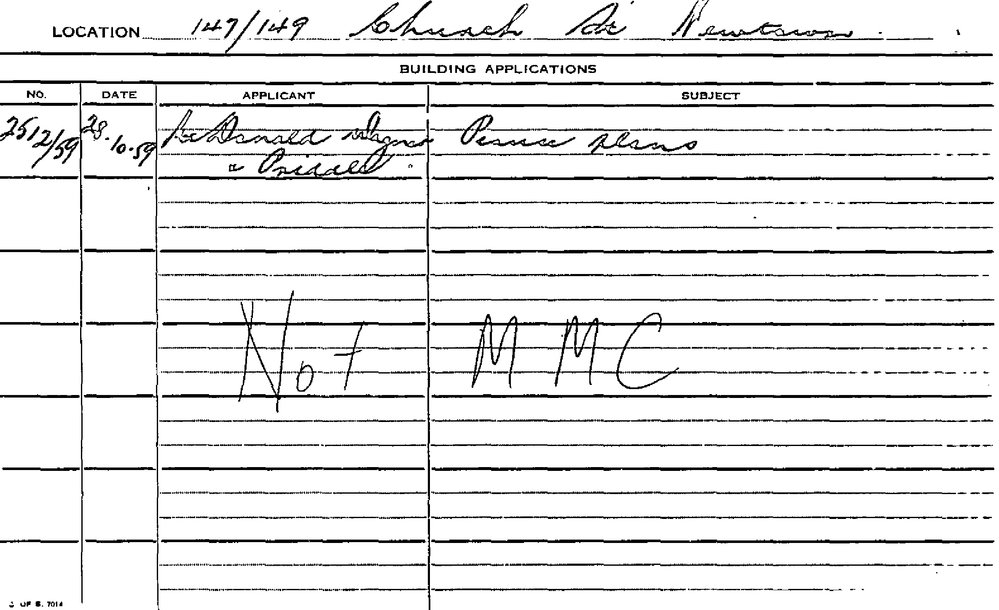 LOCATION 147/149 Church St Newtown.
BUILDING APPLICATIONS
NO. DATE APPLICANT SUBJECT
2512/59 28.10.59 McDonald Wagner Peruse plans
& Priddle
Not MMC
C OF S. 7014